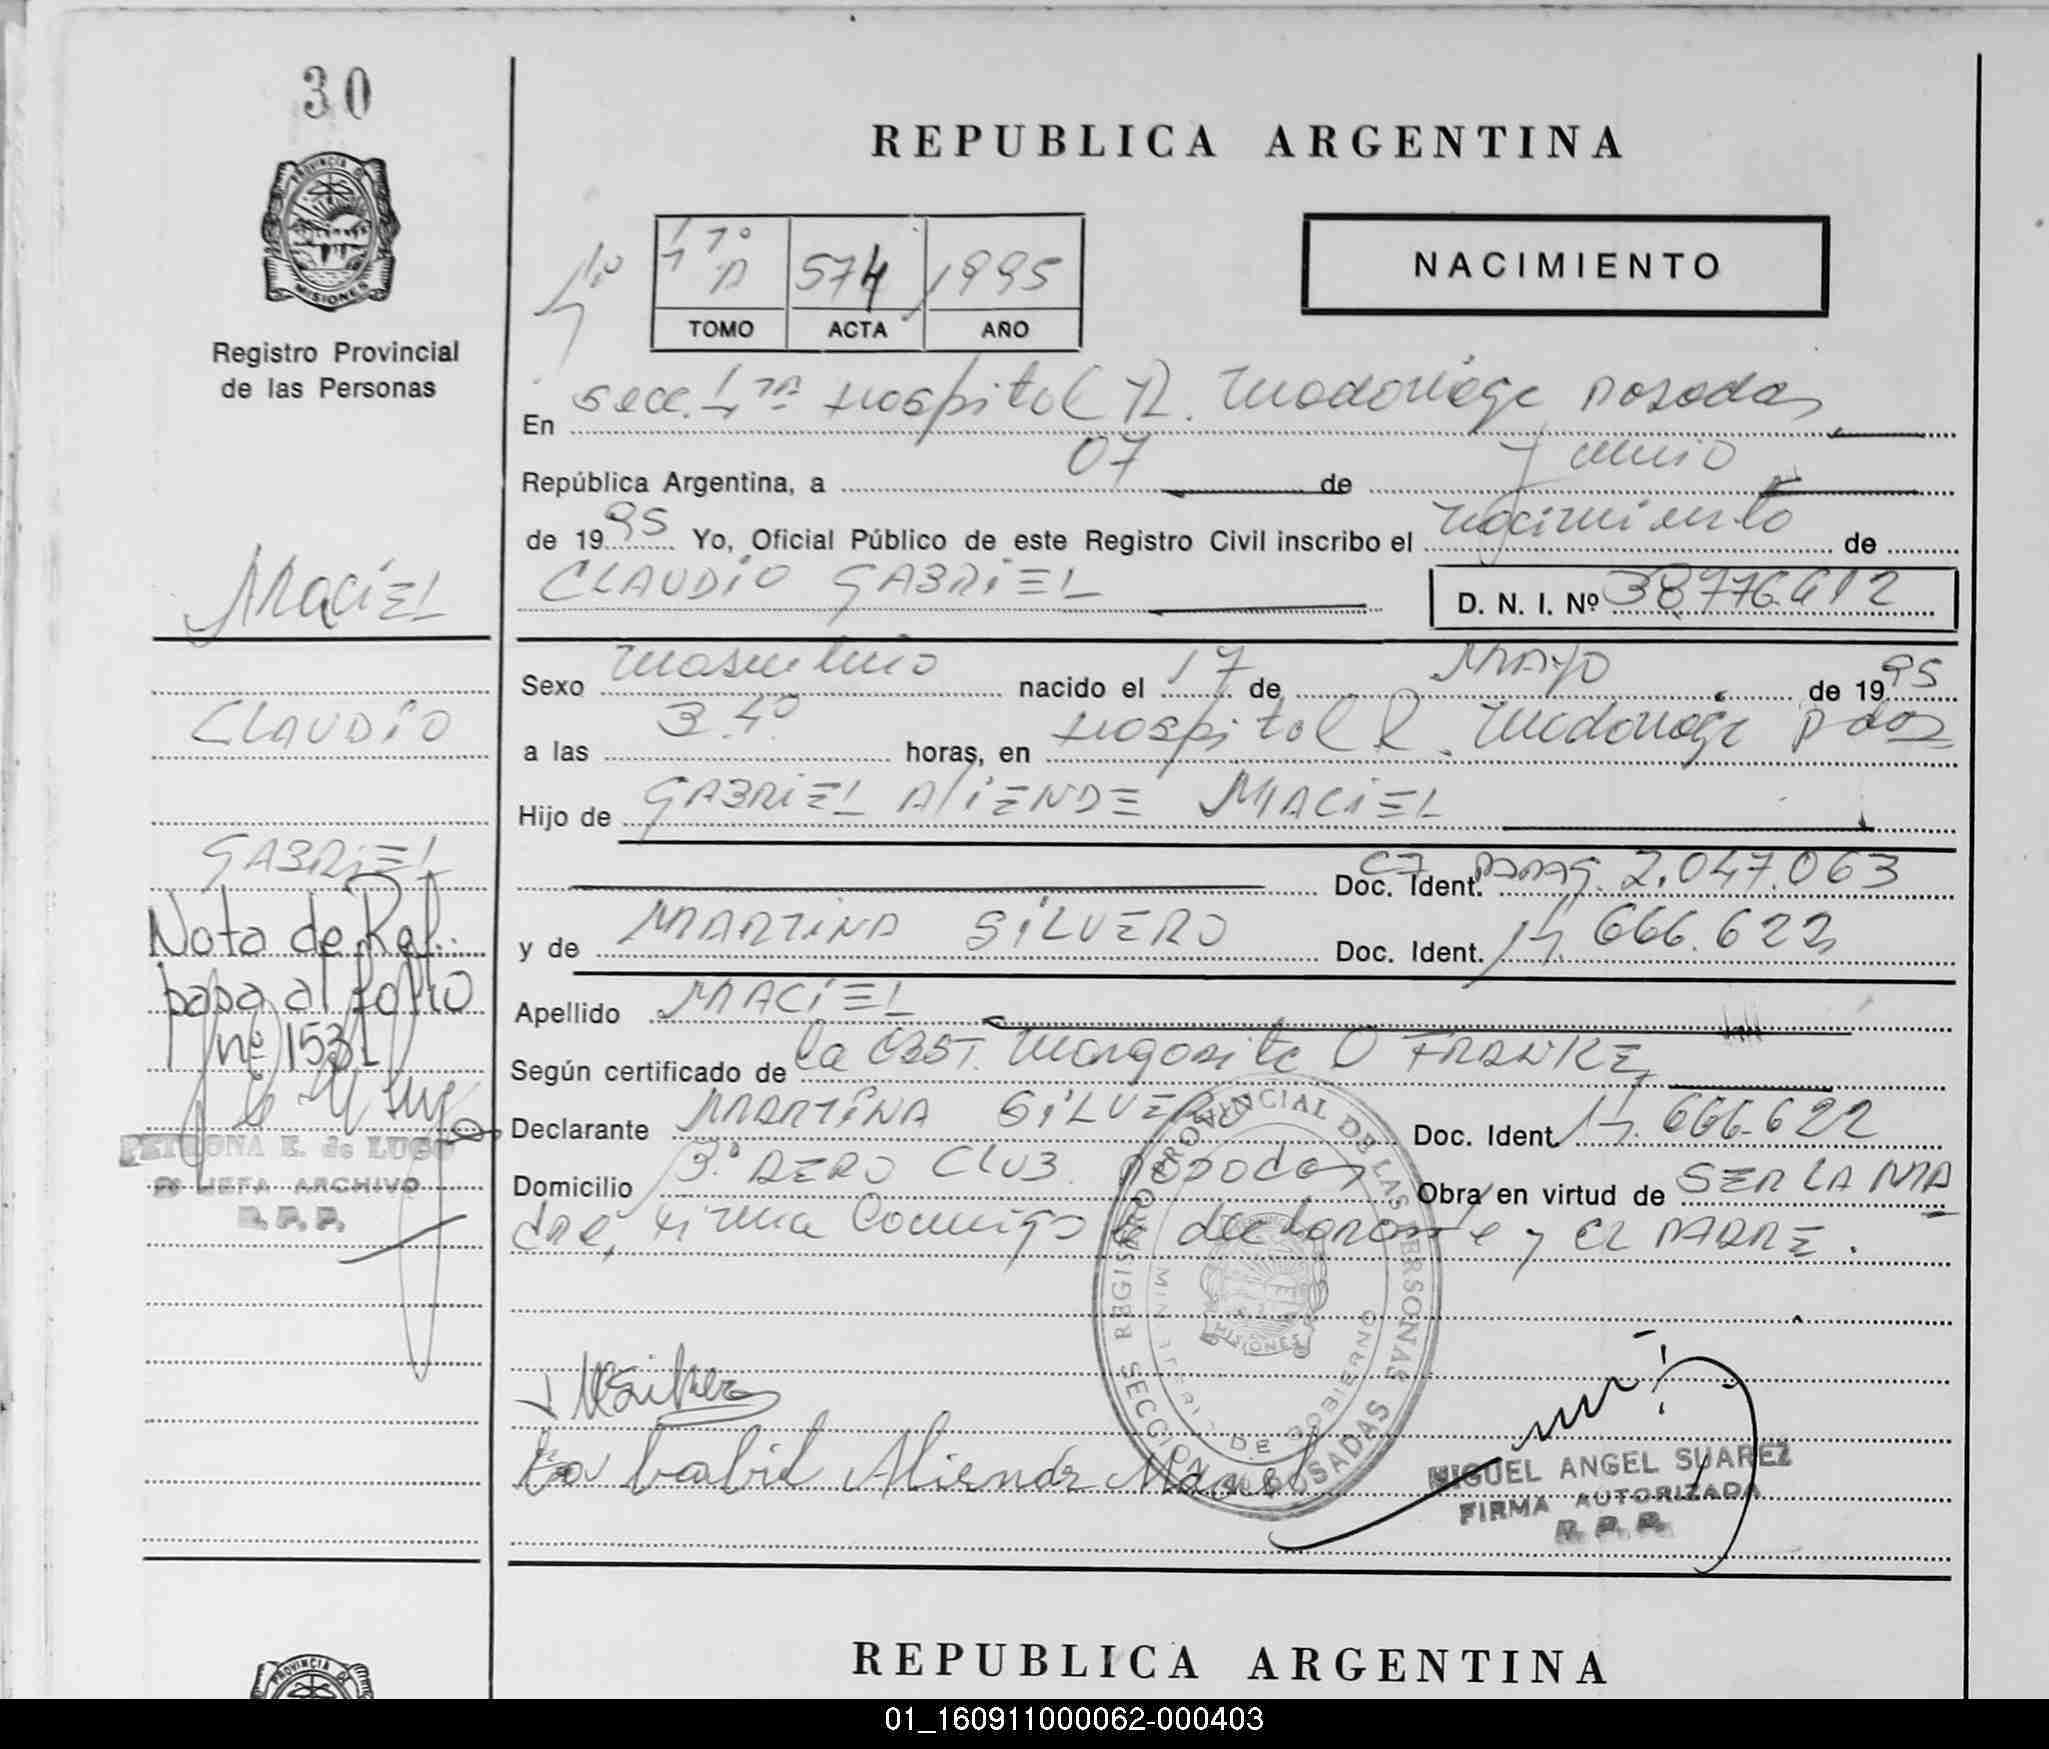 30
PROVINCIA D
MISIONES
Registro Provincial
de las Personas
REPUBLICA ARGENTINA
1º
11º A 574 1995
TOMO ACTA AÑO
NACIMIENTO
En secc. 1ra Hospital R. Madariaga Posadas
República Argentina, a 07 de Junio
de 1995 Yo, Oficial Público de este Registro Civil inscribo el nacimiento de
CLAUDIO GABRIEL D. N. I. Nº 38776412
MACIEL
CLAUDIO
GABRIEL
Nota de Ref.
pasa al folio
nº 153
PETRONA E. de LUGO
JEFA ARCHIVO
R. P. P.
Sexo masculino nacido el 17 de MAYO de 1995
a las 3.40 horas, en Hospital R. Madariaga Pdas
Hijo de GABRIEL AliENDE MACIEL
Doc. Ident. CI PARAG. 2.047.063
y de MARTINA SILVERO Doc. Ident. 14.666.622
Apellido MACIEL
Según certificado de la OBST. Margarita O FRANKE
Declarante MARTINA SILVERO Doc. Ident. 14.666.622
Domicilio Bº AERO CLUB Posadas Obra en virtud de SER LA MA
dre, firma Conmigo la declarante y EL PADRE.
REGISTRO PROVINCIAL DE LAS PERSONAS
MINISTERIO DE GOBIERNO
MISIONES
SECCION POSADAS
MIGUEL ANGEL SUAREZ
FIRMA AUTORIZADA
R. P. P.
PROVINCIA D
REPUBLICA ARGENTINA
01_160911000062-000403